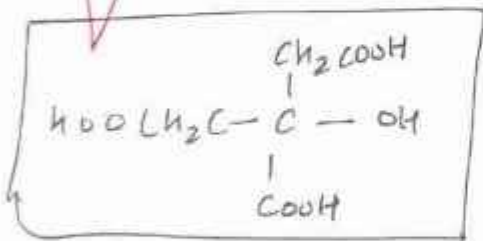 CH₂COOH
|
HOOCH₂C — C — OH
|
COOH